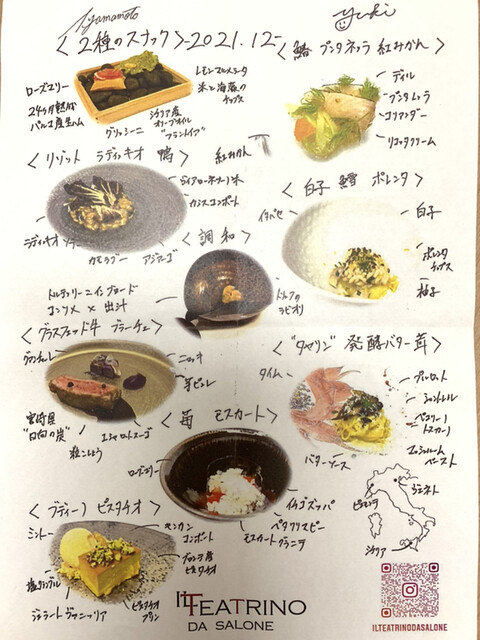 Yamamoto
yuki
<2種のスナック>-2021.12-
ローズマリー
24ヶ月熟成
パルマ産生ハム
グリッシーニ
シチリア産
オリーブオイル
"フラントイア"
米と海藻の
チップス
<鰆 プンタレッラ 紅みかん>
ディル
プンタレッラ
コリアンダー
リコッタクリーム
紅みかん
<リゾット ラディッキオ 鴨>
カシスコンポート
カモラグー
アジアーゴ
<白子 鱈 ポレンタ>
イタパセ
白子
ポレンタ
チップス
柚子
<調和>
トルテッリーニインブロード
コンソメ × 出汁
トリュフの
ラビオリ
<グラスフェッド牛 ブラーチェ>
グアンチャーレ
ニョッキ
芽ビール
宮崎県
"日向の炭"
粒こしょう
エシャロットスーゴ
<"タヤリン" 発酵バター 茸>
タイム
ジロール
バターソース
ペコリーノ
トスカーノ
マッシュルーム
ペースト
<苺 モスカート>
ローズマリー
イチゴズッパ
ペタクリスピー
モスカートグラニテ
<ブディーノ ピスタチオ>
ミント
キンカン
コンポート
ブロンテ産
ピスタチオ
ピスタチオ
プリン
塩クランブル
ジェラートヴァニッリア
ピエモンテ
ヴェネト
シチリア
IL TEATRINO
DA SALONE
ILTEATRINODASALONE